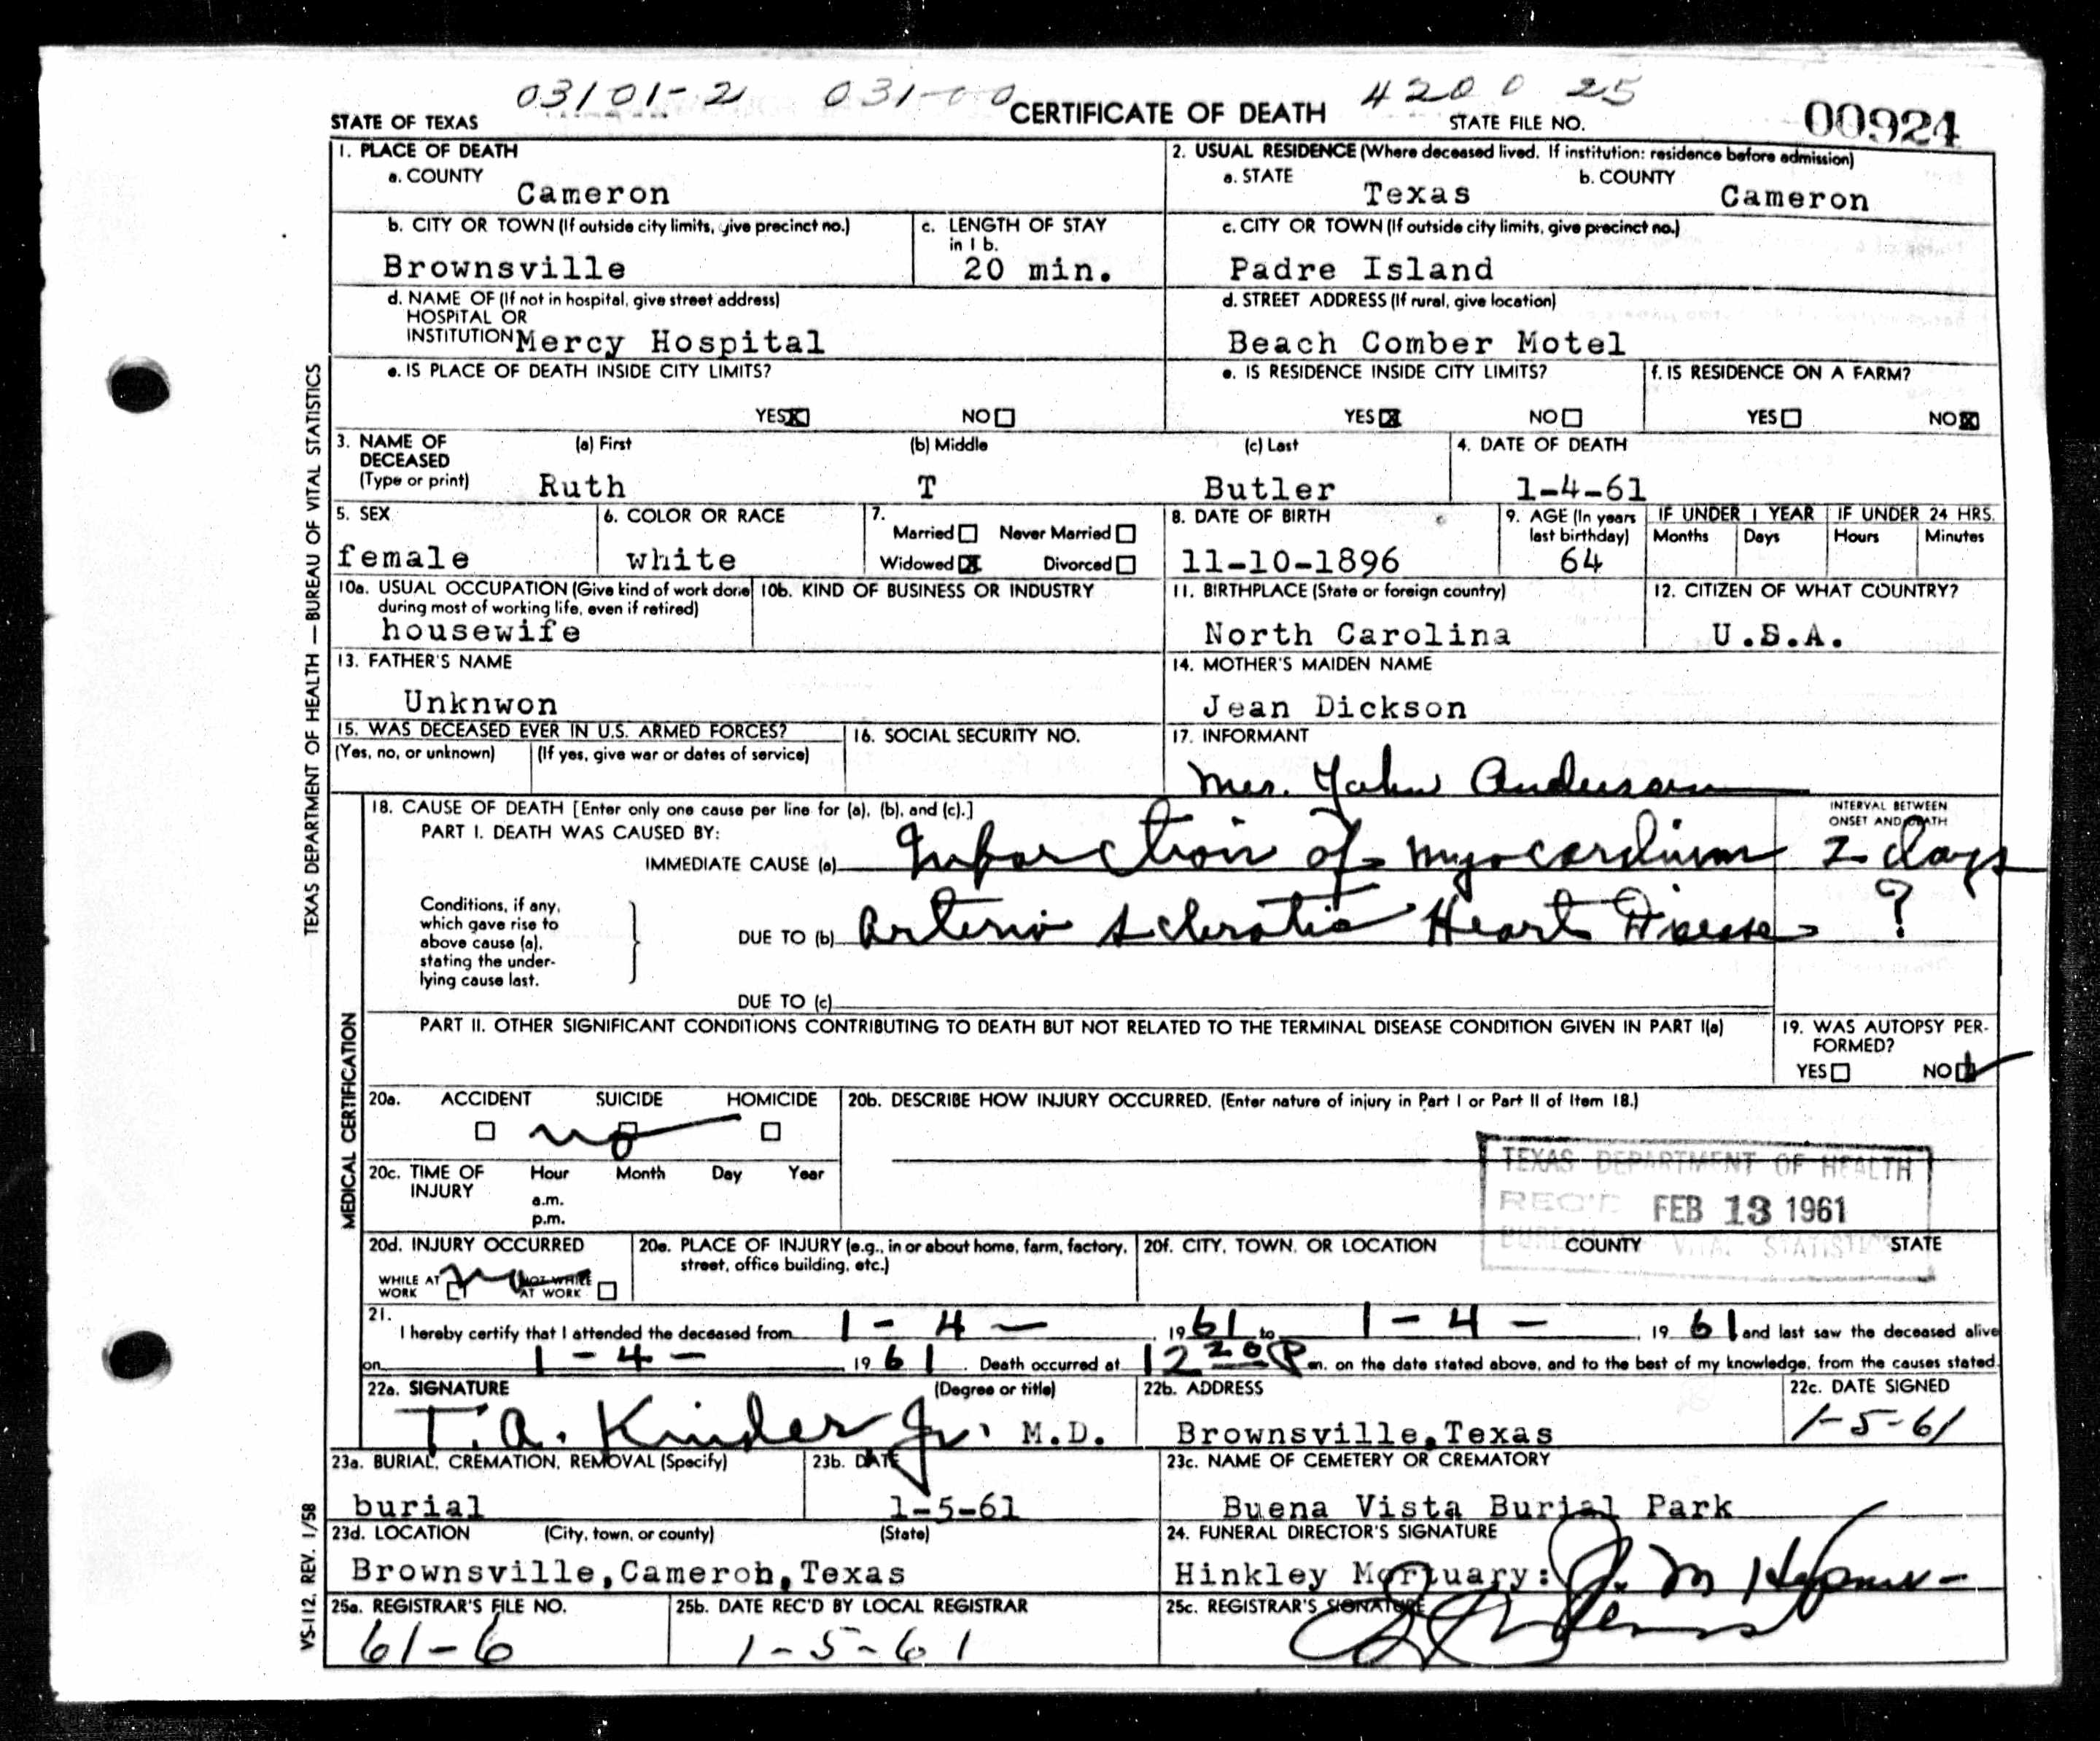 03101-21 031-00 4200 25
STATE OF TEXAS CERTIFICATE OF DEATH STATE FILE NO. 00924
TEXAS DEPARTMENT OF HEALTH — BUREAU OF VITAL STATISTICS
1. PLACE OF DEATH
a. COUNTY
Cameron
2. USUAL RESIDENCE (Where deceased lived. If institution: residence before admission)
a. STATE b. COUNTY
Texas Cameron
b. CITY OR TOWN (If outside city limits, give precinct no.)
Brownsville
c. LENGTH OF STAY
in 1 b.
20 min.
c. CITY OR TOWN (If outside city limits, give precinct no.)
Padre Island
d. NAME OF (If not in hospital, give street address)
HOSPITAL OR
INSTITUTION Mercy Hospital
d. STREET ADDRESS (If rural, give location)
Beach Comber Motel
e. IS PLACE OF DEATH INSIDE CITY LIMITS?
YES ☒ NO ☐
e. IS RESIDENCE INSIDE CITY LIMITS?
YES ☒ NO ☐
f. IS RESIDENCE ON A FARM?
YES ☐ NO ☒
3. NAME OF DECEASED
(Type or print)
(a) First (b) Middle (c) Last
Ruth T Butler
4. DATE OF DEATH
1-4-61
5. SEX
female
6. COLOR OR RACE
white
7.
Married ☐ Never Married ☐
Widowed ☒ Divorced ☐
8. DATE OF BIRTH
11-10-1896
9. AGE (In years
last birthday)
64
IF UNDER 1 YEAR IF UNDER 24 HRS.
Months Days Hours Minutes
10a. USUAL OCCUPATION (Give kind of work done
during most of working life, even if retired)
housewife
10b. KIND OF BUSINESS OR INDUSTRY
11. BIRTHPLACE (State or foreign country)
North Carolina
12. CITIZEN OF WHAT COUNTRY?
U.S.A.
13. FATHER'S NAME
Unknwon
14. MOTHER'S MAIDEN NAME
Jean Dickson
15. WAS DECEASED EVER IN U.S. ARMED FORCES?
(Yes, no, or unknown) (If yes, give war or dates of service)
16. SOCIAL SECURITY NO.
17. INFORMANT
Mrs. John Anderson
MEDICAL CERTIFICATION
18. CAUSE OF DEATH [Enter only one cause per line for (a), (b), and (c).]
PART I. DEATH WAS CAUSED BY:
INTERVAL BETWEEN
ONSET AND DEATH
IMMEDIATE CAUSE (a) Infarction of myocardium 2 days
Conditions, if any,
which gave rise to
above cause (a),
stating the under-
lying cause last.
DUE TO (b) Arterio Sclerotic Heart Disease ?
DUE TO (c)
PART II. OTHER SIGNIFICANT CONDITIONS CONTRIBUTING TO DEATH BUT NOT RELATED TO THE TERMINAL DISEASE CONDITION GIVEN IN PART I(a)
19. WAS AUTOPSY PER-
FORMED?
YES ☐ NO ☑
20a. ACCIDENT SUICIDE HOMICIDE
no
20b. DESCRIBE HOW INJURY OCCURRED. (Enter nature of injury in Part I or Part II of Item 18.)
20c. TIME OF
INJURY
Hour Month Day Year
a.m.
p.m.
TEXAS DEPARTMENT OF HEALTH
REC'D FEB 13 1961
BUREAU VITAL STATISTICS
20d. INJURY OCCURRED
WHILE AT
WORK
no
NOT WHILE
AT WORK
20e. PLACE OF INJURY (e.g., in or about home, farm, factory,
street, office building, etc.)
20f. CITY, TOWN, OR LOCATION COUNTY STATE
21.
I hereby certify that I attended the deceased from 1-4- , 1961 to 1-4- , 1961 and last saw the deceased alive
on 1-4- , 1961 . Death occurred at 12 20 P m. on the date stated above, and to the best of my knowledge, from the causes stated.
22a. SIGNATURE (Degree or title)
T. A. Kinder Jr. M.D.
22b. ADDRESS
Brownsville,Texas
22c. DATE SIGNED
1-5-61
23a. BURIAL, CREMATION, REMOVAL (Specify)
burial
23b. DATE
1-5-61
23c. NAME OF CEMETERY OR CREMATORY
Buena Vista Burial Park
23d. LOCATION (City, town, or county) (State)
Brownsville,Cameron,Texas
24. FUNERAL DIRECTOR'S SIGNATURE
Hinkley Mortuary:
25a. REGISTRAR'S FILE NO.
61-6
25b. DATE REC'D BY LOCAL REGISTRAR
1-5-61
25c. REGISTRAR'S SIGNATURE
VS-112. REV. 1/58